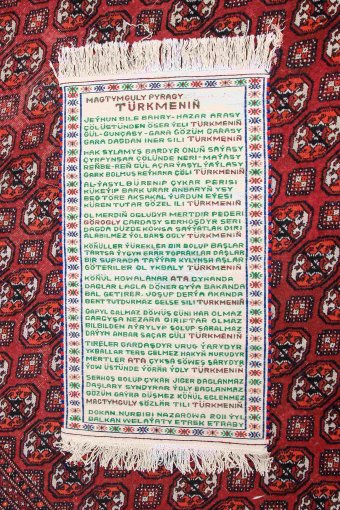 MAGTYMGULY PYRAGY
TÜRKMENIŇ
JEÝHUN BILE BAHRY-HAZAR ARASY
ÇÖLÜSTÜNDEN ÖSER ÝELI TÜRKMENIŇ
GÜL-GUNÇASY-GARA GÖZÜM GARASY
GARA DAGDAN INER SILI TÜRKMENIŇ
HAK SYLAMYŞ BARDYR ONUŇ SAÝASY
ÇYRPYNŞAR ÇÖLÜNDE NERI-MAÝASY
REŇBE-REŇ GÜL AÇAR ÝAŞYL ÝAÝLASY
GARK BOLMUŞ REÝHANA ÇÖLI TÜRKMENIŇ
AL-ÝAŞYL BÜRENIP ÇYKAR PERISI
KÜKEÝIP BARK URAR ANBARYŇ YSY
BEG TÖRE AKSAKAL ÝURDUŇ EÝESI
KÜREN TUTAR GÖZEL ILI TÜRKMENIŇ
OL MERDIŇ OGLUDYR MERTDIR PEDERI
GÖROGLY GARDAŞY SERHOŞDYR SERI
DAGDA DÜZDE KOWSA SAÝÝATLAR DIRI
ALABILMEZ ÝOLBARS OGLY TÜRKMENIŇ
KÖŇÜLLER ÝÜREKLER BIR BOLUP BAŞLAR
TARTSA ÝYGYN ERÄR TOPRAKLAR DAŞLAR
BIR SUPRADA TAÝÝAR KYLYNSA AŞLAR
GÖTERILER OL YKBALY TÜRKMENIŇ
KÖŇÜL HOWALANAR ATA ÇYKANDA
DAGLAR LAGLA DÖNER GYÝA BAKANDA
BAL GETIRER JOŞUP DERÝA AKANDA
BENT TUTDURMAZ GELSE SILI TÜRKMENIŇ
GAPYL GALMAZ DÖWÜŞ GÜNI HAR OLMAZ
GARGYŞA NEZARA GIRIFTAR OLMAZ
BILBILDEN AÝRYLYP SOLUP SARALMAZ
DAÝYM ANBAR SAÇAR GÜLI TÜRKMENIŇ
TIRELER GARDAŞDYR URUG ÝARYDYR
YKBALLAR TERS GELMEZ HAKYŇ NURUDYR
MERTLER ATA ÇYKSA SÖWEŞ SARYDYR
ÝOW ÜSTÜNDE ÝÖRÄR ÝOLY TÜRKMENIŇ
SERHOŞ BOLUP ÇYKAR JIGER DAGLANMAZ
DAŞLARY SYNDYRAR ÝOLY BAGLANMAZ
GÖZÜM GAÝRA DÜŞMEZ KÖŇÜL EGLENMEZ
MAGTYMGULY SÖZLÄR TILI TÜRKMENIŇ
DOKAN: NURBIBI NAZAROWA 2011 ÝY
BALKAN WELAÝATY ETREK ETRABY